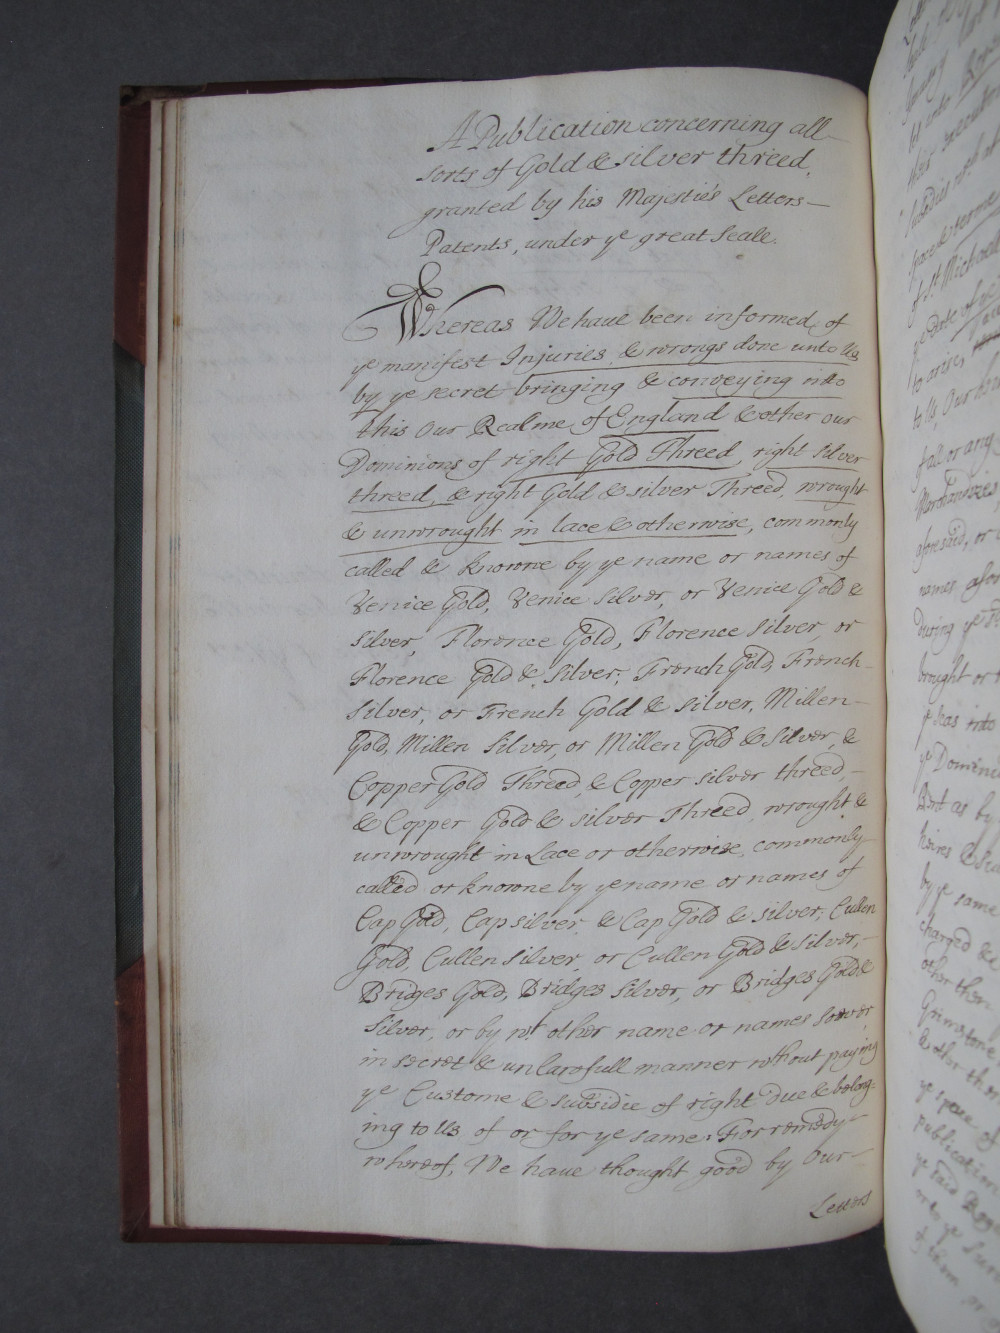 A Publication concerning all
sorts of Gold & silver threed,
granted by his Majestie's Letters
Patents, under ye great Seale.
Whereas We haue been informed of
ye manifest Injuries, & wrongs done unto Us,
by ye secret bringing & conveying into
this Our Realme of England & other our
Dominions of right Gold Threed, right silver
threed, & right Gold & silver Threed, wrought
& unwrought in lace & otherwise, commonly
called & knowne by ye name or names of
Venice Gold, Venice Silver, or Venice Gold &
Silver, Florence Gold, Florence Silver, or
Florence Gold & Silver; French Gold, French
Silver, or French Gold & Silver, Millen
Gold, Millen Silver, or Millen Gold & Silver, &
Copper Gold Threed, & Copper silver threed,
& Copper Gold & silver Threed, wrought &
unwrought in Lace or otherwise, commonly
called or knowne by ye name or names of
Cap Gold, Cap silver, & Cap Gold & silver; Cullen
Gold, Cullen silver, or Cullen Gold & Silver,
Bridges Gold, Bridges Silver, or Bridges Gold &
Silver, or by wt other name or names soever
in secret & unlawfull manner wthout paying
ye Custome & subsidie of right due & belong=
ing to Us of or for ye same: For remedy
whereof, We have thought good by Our
Letters